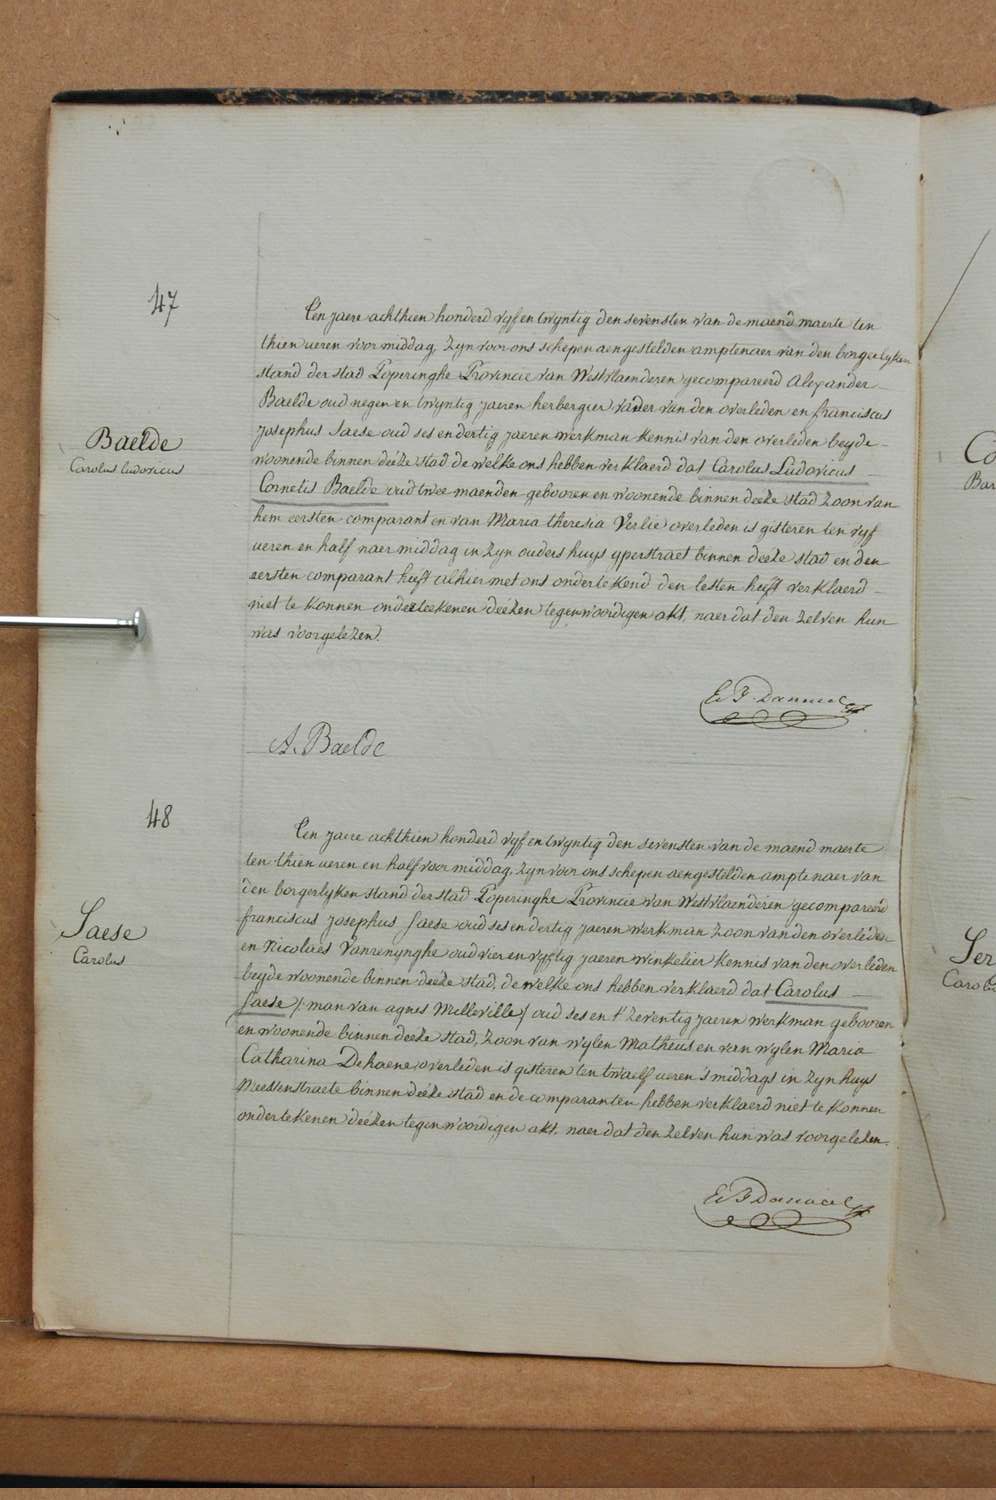 47
Baelde
Carolus ludovicus
Ten jaere achthien honderd vyf en twyntig den sevensten van de maend maerte ten
thien ueren voor middag, zyn voor ons schepen aengestelden amptenaer van den borgerlyken
stand der stad Poperinghe Provincie van Westvlaenderen gecompareerd Alexander
Baelde oud negen en twyntig jaeren herbergier vader van den overleden en franciscus
josephus Saese oud ses en dertig jaeren werkman kennis van den overleden beyde
woonende binnen deéze stad de welke ons hebben verklaerd dat Carolus Ludovicus
Cornelis Baelde oud twee maenden gebooren en woonende binnen deeze stad zoon van
hem eersten comparant en van Maria theresia Verlie overleden is gisteren ten vyf
ueren en half naer middag in zyn ouders huys yperstraet binnen deeze stad en den
eersten comparant heeft alhier met ons onderteekend den lesten heeft verklaerd
niet te konnen onderteekenen deézen tegenwoordigen akt, naer dat den zelven hun
was voorgelezen.
A. Baelde
48
Saese
Carolus
Ten jaere achthien honderd vyf en twyntig den sevensten van de maend maerte
ten thien ueren en half voor middag, zyn voor ons schepen aengestelden amptenaer van
den borgerlyken stand der stad Poperinghe Provincie van Westvlaenderen gecompareerd
franciscus josephus Saese oud ses en dertig jaeren werkman zoon van den overleden
en Nicolaes Vanrenynghe oud vier en vyftig jaeren winkelier kennis van den overleden
beyde woonende binnen deeze stad, de welke ons hebben verklaerd dat Carolus
Saese /: man van agnes Milleville / oud ses en t'zeventig jaeren werkman gebooren
en woonende binnen deeze stad, zoon van wylen Matheus en van wylen Maria
Catharina Dehaene overleden is gisteren ten twaelf ueren 's middags in zyn huys
binnen deéze stad en de comparanten hebben verklaerd niet te konnen
ondertekenen deézen tegenwoordigen akt, naer dat den zelven hun was voorgelezen.